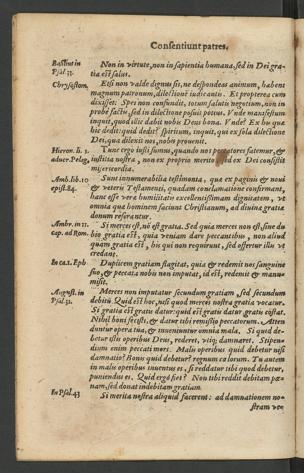 Consentiunt patres.
Basilius in
Psal. 33.
Non in virtute, non in sapientia humana, sed in Dei gra-
tia est salus.
Chrysostom.
Etsi non valde dignus sis, ne despondeas animum, habens
magnum patronum, dilectione iudicanti. Et propterea cum
dixisset: Spes non confundit, totum salutis negotium, non in
probe factis, sed in dilectione posuit potius. Vnde manifestum
inquit, quod ille dabit nobis Deus bona. Vnde? Ex his quæ
hic dedit: quid dedit? spiritum, inquit, qui ex sola dilectione
Dei, qua dilexit nos, nobis prouenit.
Hieron. li. 1.
aduer. Pelag.
Tunc ergo iusti sumus, quando nos peccatores fatemur, &
iustitia nostra, non ex proprio merito sed ex Dei consistit
misericordia.
Amb. lib. 10
epist. 84.
Sunt innumerabilia testimonia, quæ ex paginis & noui
& veteris Testamenti, quadam conclamatione confirmant,
hanc esse vera humilitatis excellentissimam dignitatem, vt
omnia quæ hominem faciunt Christianum, ad diuina gratiæ
donum referantur.
Ambr. in 11.
cap. ad Rom.
Si merces est, nō est gratia. Sed quia merces non est, sine du-
bio gratia est, quia veniam dare peccantibus, non aliud
quam gratia est, his qui non requirunt, sed offertur illis vt
credant.
In ca. 1. Eph
Duplicem gratiam significat, quia & redemit nos sanguine
suo, & peccata nobis non imputat, id est, redemit & manu-
misit.
August. in
Psal. 31.
Merces non imputatur secundum gratiam, sed secundum
debitū. Quid est hoc, nisi quod merces nostra gratia vocatur.
Si gratia est gratis datur: quid est gratis datur gratis constat.
Nihil boni fecisti, & datur tibi remissio peccatorum. Atten
duntur opera tua, & inueniuntur omnia mala. Si quid de-
betur istis operibus Deus, rederet, vtiq; damnaret. Stipen-
dium enim peccati mors. Malis operibus quid debetur nisi
damnatio? Bonis quid debetur? regnum cælorum. Tu autem
in malis operibus inuentus es, si reddatur tibi quod debetur,
puniendus es. Quid ergo fies? Non tibi reddit debitam pœ-
nam, sed donat indebitam gratiam.
In Psal. 43
Si merita nostra aliquid facerent: ad damnationem no-
stram ve-